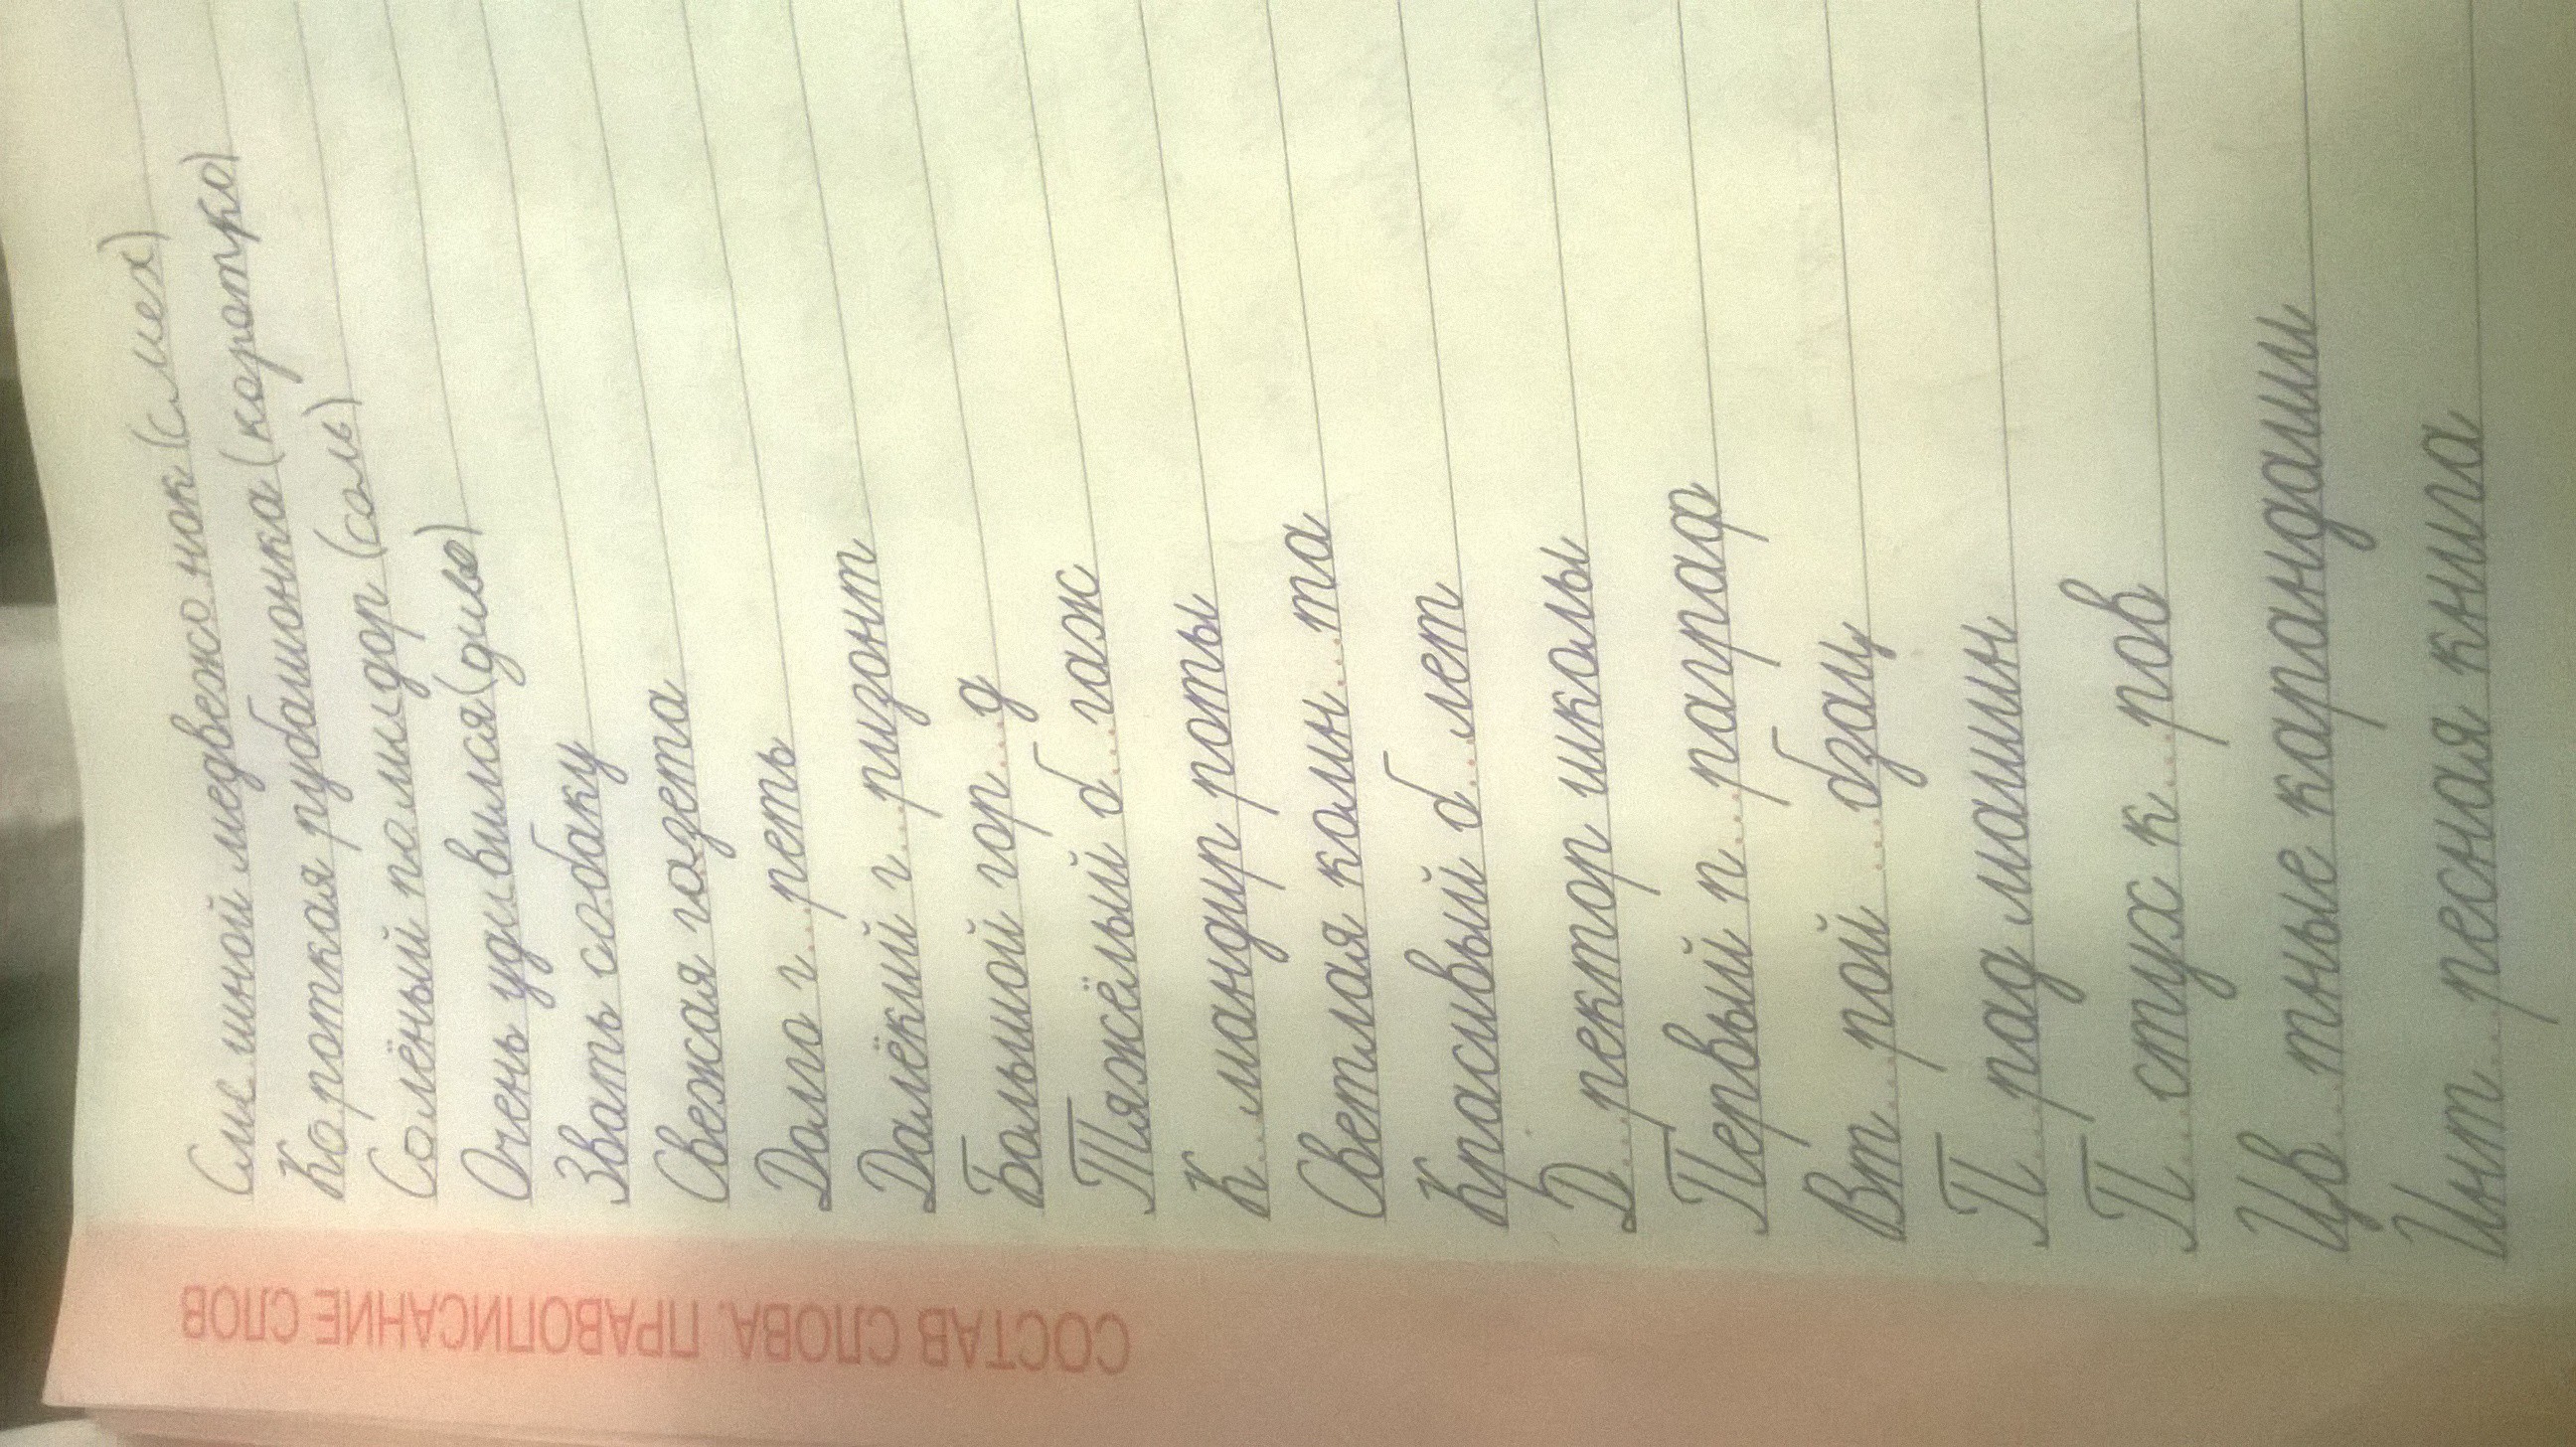 СОСТАВ СЛОВА. ПРАВОПИСАНИЕ СЛОВ
Смешной медвежонок (смех)
Короткая рубашонка (коротко)
Солёный помидор (соль)
Очень удивился (диво)
Звать собаку
Свежая газета
Долго г...реть
Далёкий г...ризонт
Большой гор...д
Тяжёлый б...гаж
К...мандир роты
Светлая комн...та
Красивый б...лет
Д...ректор школы
Первый п...раграф
Вт...рой ...бзац
П...рад машин
П...стух к...ров
Цв...тные карандаши
Инт...ресная книга